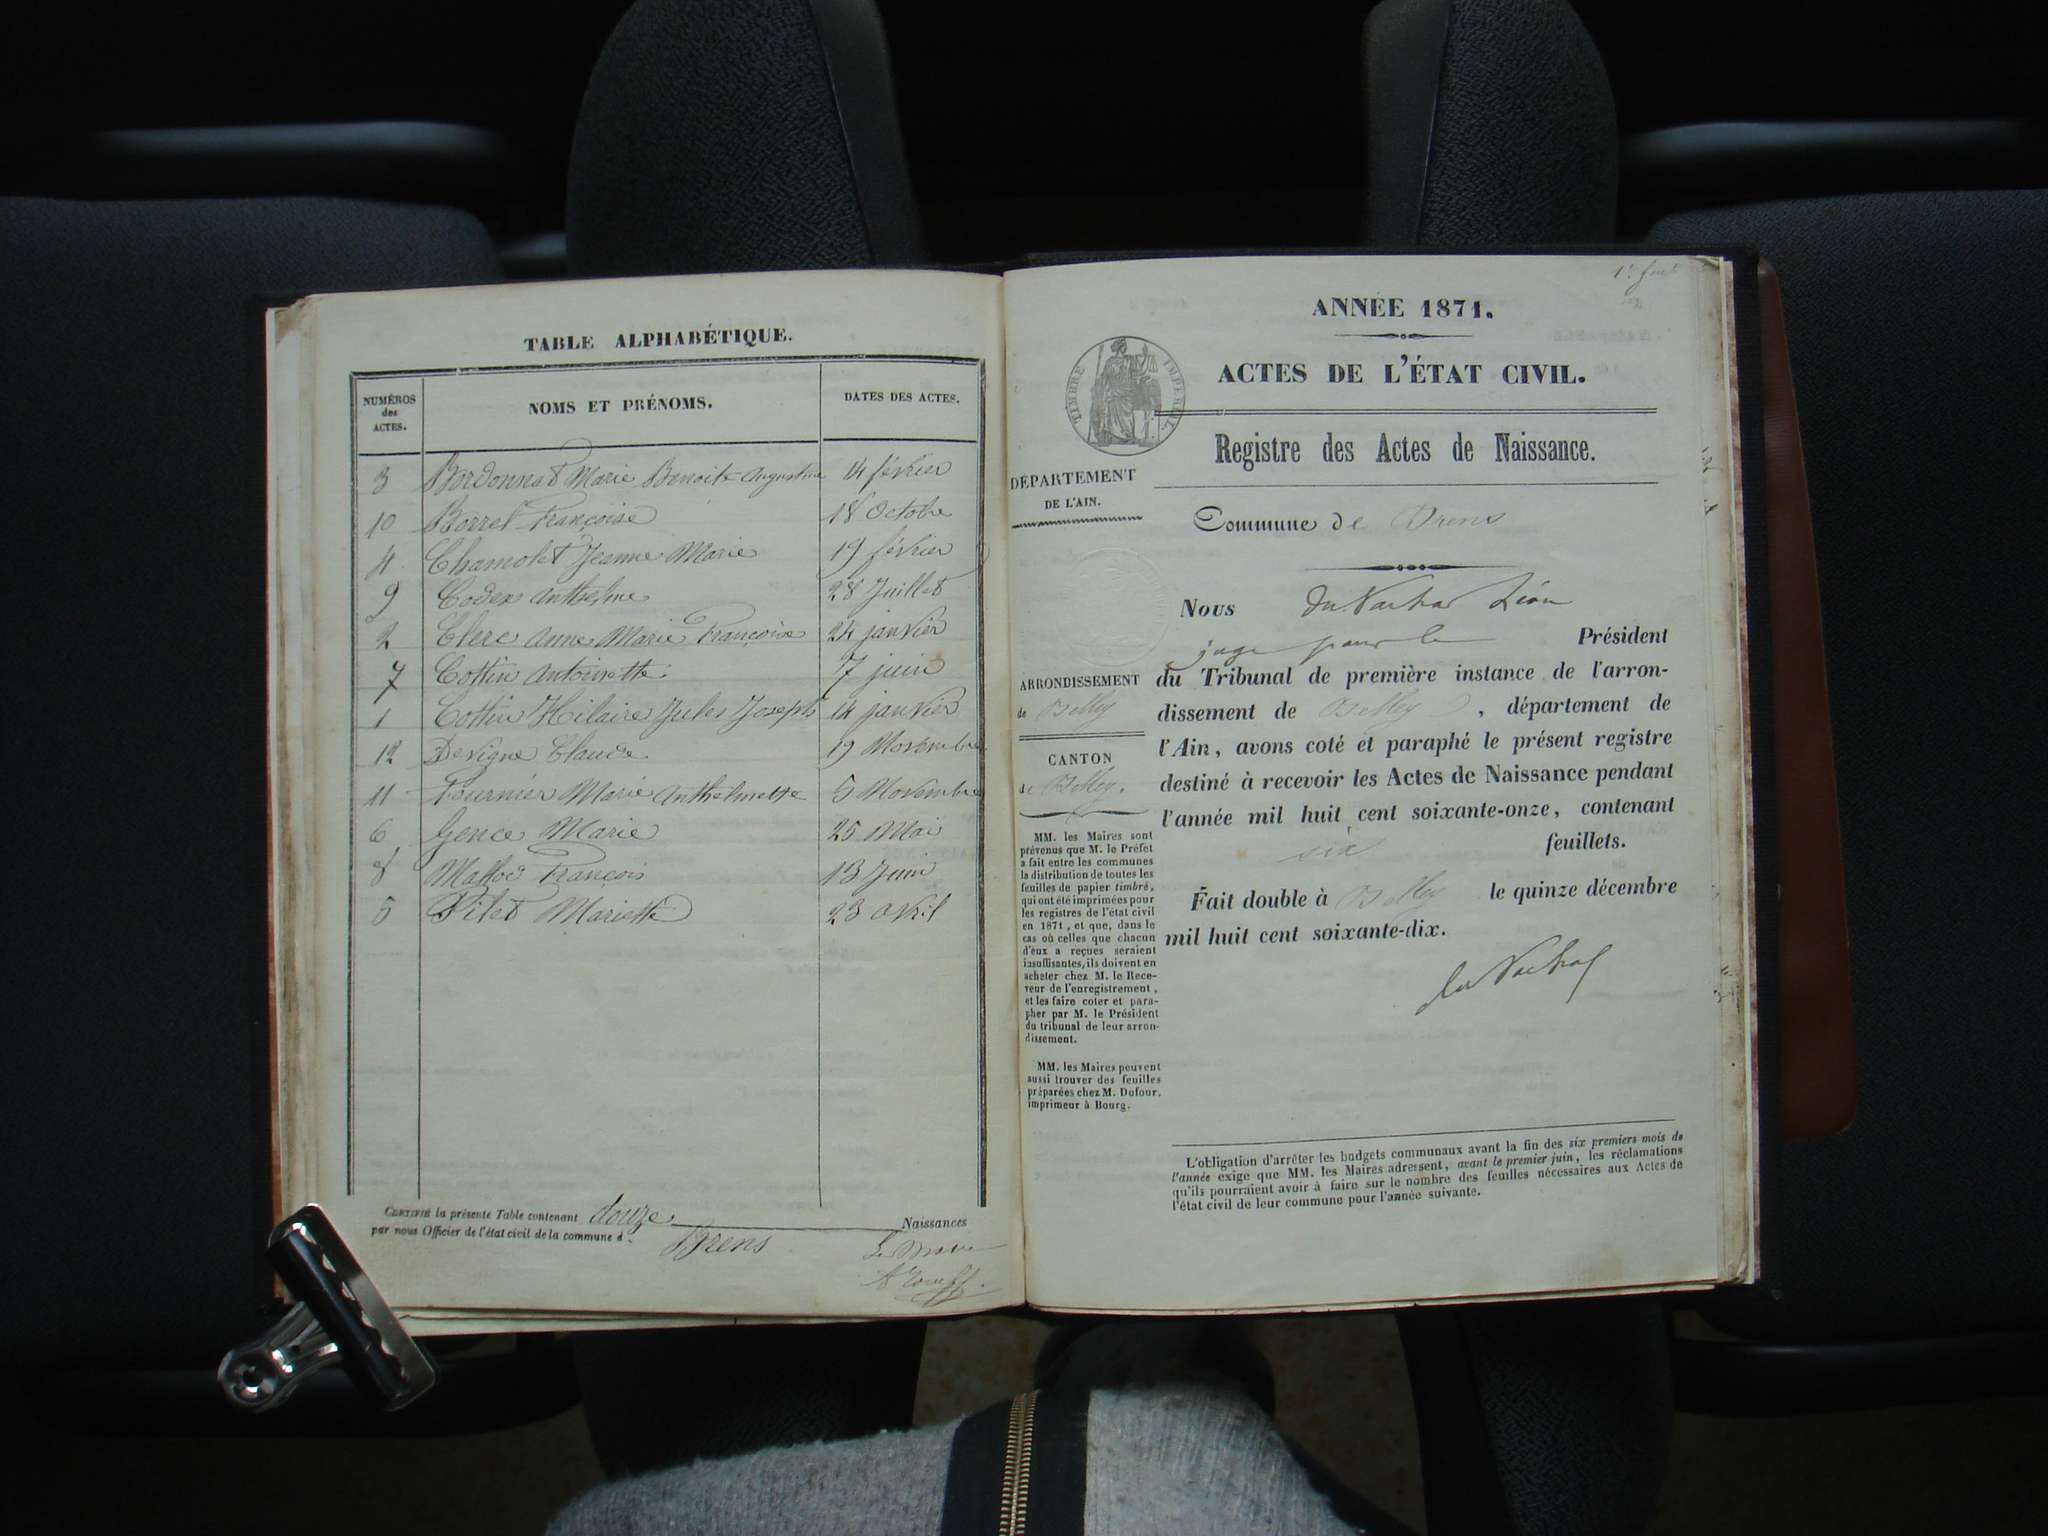 TABLE ALPHABÉTIQUE.
NUMÉROS des ACTES.
NOMS ET PRÉNOMS.
DATES DES ACTES.
3 Bordonnat Marie Benoite Augustine 14 février
10 Borrel Françoise 18 Octobre
4 Chamolet Jeanne Marie 19 février
9 Coder Anthelme 28 Juillet
2 Clerc Anne Marie Françoise 24 janvier
7 Cottin Antoinette 7 juin
1 Cottin Hilaire Jules Joseph 14 janvier
12 Devigne Claude 19 Novembre
11 Fournier Marie Anthelmette 5 Novembre
6 Gence Marie 25 Mai
8 François 13 Juin
5 Pilet Mariette 23 avril
CERTIFIÉ la présente Table contenant douze Naissances
par nous Officier de l'état civil de la commune d Brens
Le Maire
ANNÉE 1871.
TIMBRE IMPERIAL
ACTES DE L'ÉTAT CIVIL.
Registre des Actes de Naissance.
DÉPARTEMENT
DE L'AIN.
Commune de Brens
Nous Léon
juge pour le Président
du Tribunal de première instance de l'arron-
dissement de Belley, département de
l'Ain, avons coté et paraphé le présent registre
destiné à recevoir les Actes de Naissance pendant
l'année mil huit cent soixante-onze, contenant
six feuillets.
Fait double à Belley le quinze décembre
mil huit cent soixante-dix.
ARRONDISSEMENT
de Belley
CANTON
de Belley.
MM. les Maires sont
prévenus que M. le Préfet
a fait entre les communes
la distribution de toutes les
feuilles de papier timbré,
qui ont été imprimées pour
les registres de l'état civil
en 1871, et que, dans le
cas où celles que chacun
d'eux a reçues seraient
insuffisantes, ils doivent en
acheter chez M. le Rece-
veur de l'enregistrement,
et les faire coter et para-
pher par M. le Président
du tribunal de leur arron-
dissement.
MM. les Maires peuvent
aussi trouver des feuilles
préparées chez M. Dufour,
imprimeur à Bourg.
L'obligation d'arrêter les budgets communaux avant la fin des six premiers mois de
l'année exige que MM. les Maires adressent, avant le premier juin, les réclamations
qu'ils pourraient avoir à faire sur le nombre des feuilles nécessaires aux Actes de
l'état civil de leur commune pour l'année suivante.